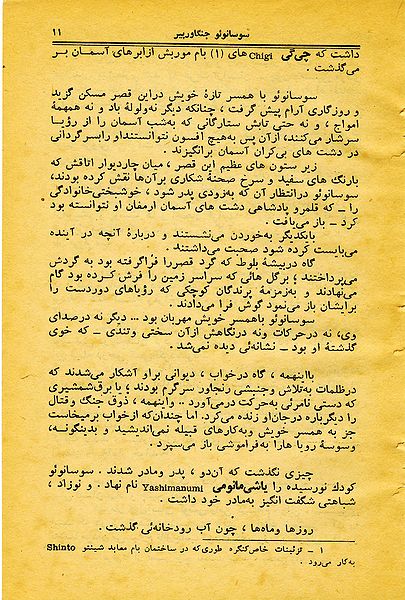 سوسانوئو جنگاورپیر
۱۱
داشت که چی‌گی Chigi های (۱) بام مورپش ازابرهای آسمان بر
می‌گذشت .
سوسانوئو با همسر تازهٔ خویش دراین قصر مسکن گزید
و روزگاری آرام پیش گرفت ، چنانکه دیگر نه‌ولولهٔ باد و نه همهمهٔ
امواج ، و نه حتی تابش ستارگانی که به‌شب آسمان را از رؤیا
سرشار می‌کنند، ازآن پس به‌هیچ افسون نتوانستنداو رابسرگردانی
در دشت های بی‌کران آسمان برانگیزند .
زیر ستون های عظیم این قصر ، میان چاردیوار اتاقش که
بارنگ های سفید و سرخ صحنهٔ شکاری برآن‌ها نقش کرده بودند،
سوسانوئو درانتظار آن که به‌زودی پدر شود ، خوشبختی‌خانوادگی
را ــ که قلمرو پادشاهی دشت های آسمان ارمغان او نتوانسته بود
کرد ــ باز می‌یافت .
بایکدیگر به‌خوردن می‌نشستند و دربارهٔ آنچه در آینده
می‌بایست کرده شود صحبت می‌داشتند .
گاه دربیشهٔ بلوط که گرد قصررا فراگرفته بود به گردش
می‌پرداختند ؛ برگل هائی که سراسر زمین را فرش کرده بود گام
می‌نهادند و به‌زمزمهٔ پرندگان کوچکی که رؤیاهای دوردست را
برایشان باز می‌نمود گوش فرا می‌دادند .
سوسانوئو باهمسر خویش مهربان بود ... دیگر نه درصدای
وی، نه درحرکات ونه درنگاهش ازآن سختی وتندی ــ که خوی
گذشتهٔ او بود ــ نشانه‌ئی دیده نمی‌شد .
بااینهمه ، گاه درخواب ، دیوانی براو آشکار می‌شدند که
درظلمات به‌تلاش وجنبشی رنجاور سرگرم بودند ؛ یا برق‌شمشیری
که دستی نامرئی به‌حرکت درمی‌آورد .. واینهمه ، ذوق جنگ وقتال
را دیگرباره درجان‌او زنده می‌کرد. اما چندان‌که ازخواب برمیخاست
جز به همسر خویش وبه‌کارهای قبیله نمی‌اندیشید و بدینگونه،
وسوسهٔ رویا هارا به‌فراموشی باز می‌سپرد .
چیزی نگذشت که آن‌دو ، پدر ومادر شدند . سوسانوئو
کودك نورسیده را یاشی‌مانومی Yashimanumi نام نهاد . و نوزاد ،
شباهتی شگفت انگیز به‌مادر خود داشت .
روزها وماه‌ها ، چون آب رودخانه‌ئی گذشت .
۱ ــ تزئینات خاص‌کنگره طوری‌که در ساختمان بام معابد شینتو Shinto
به‌کار می‌رود .